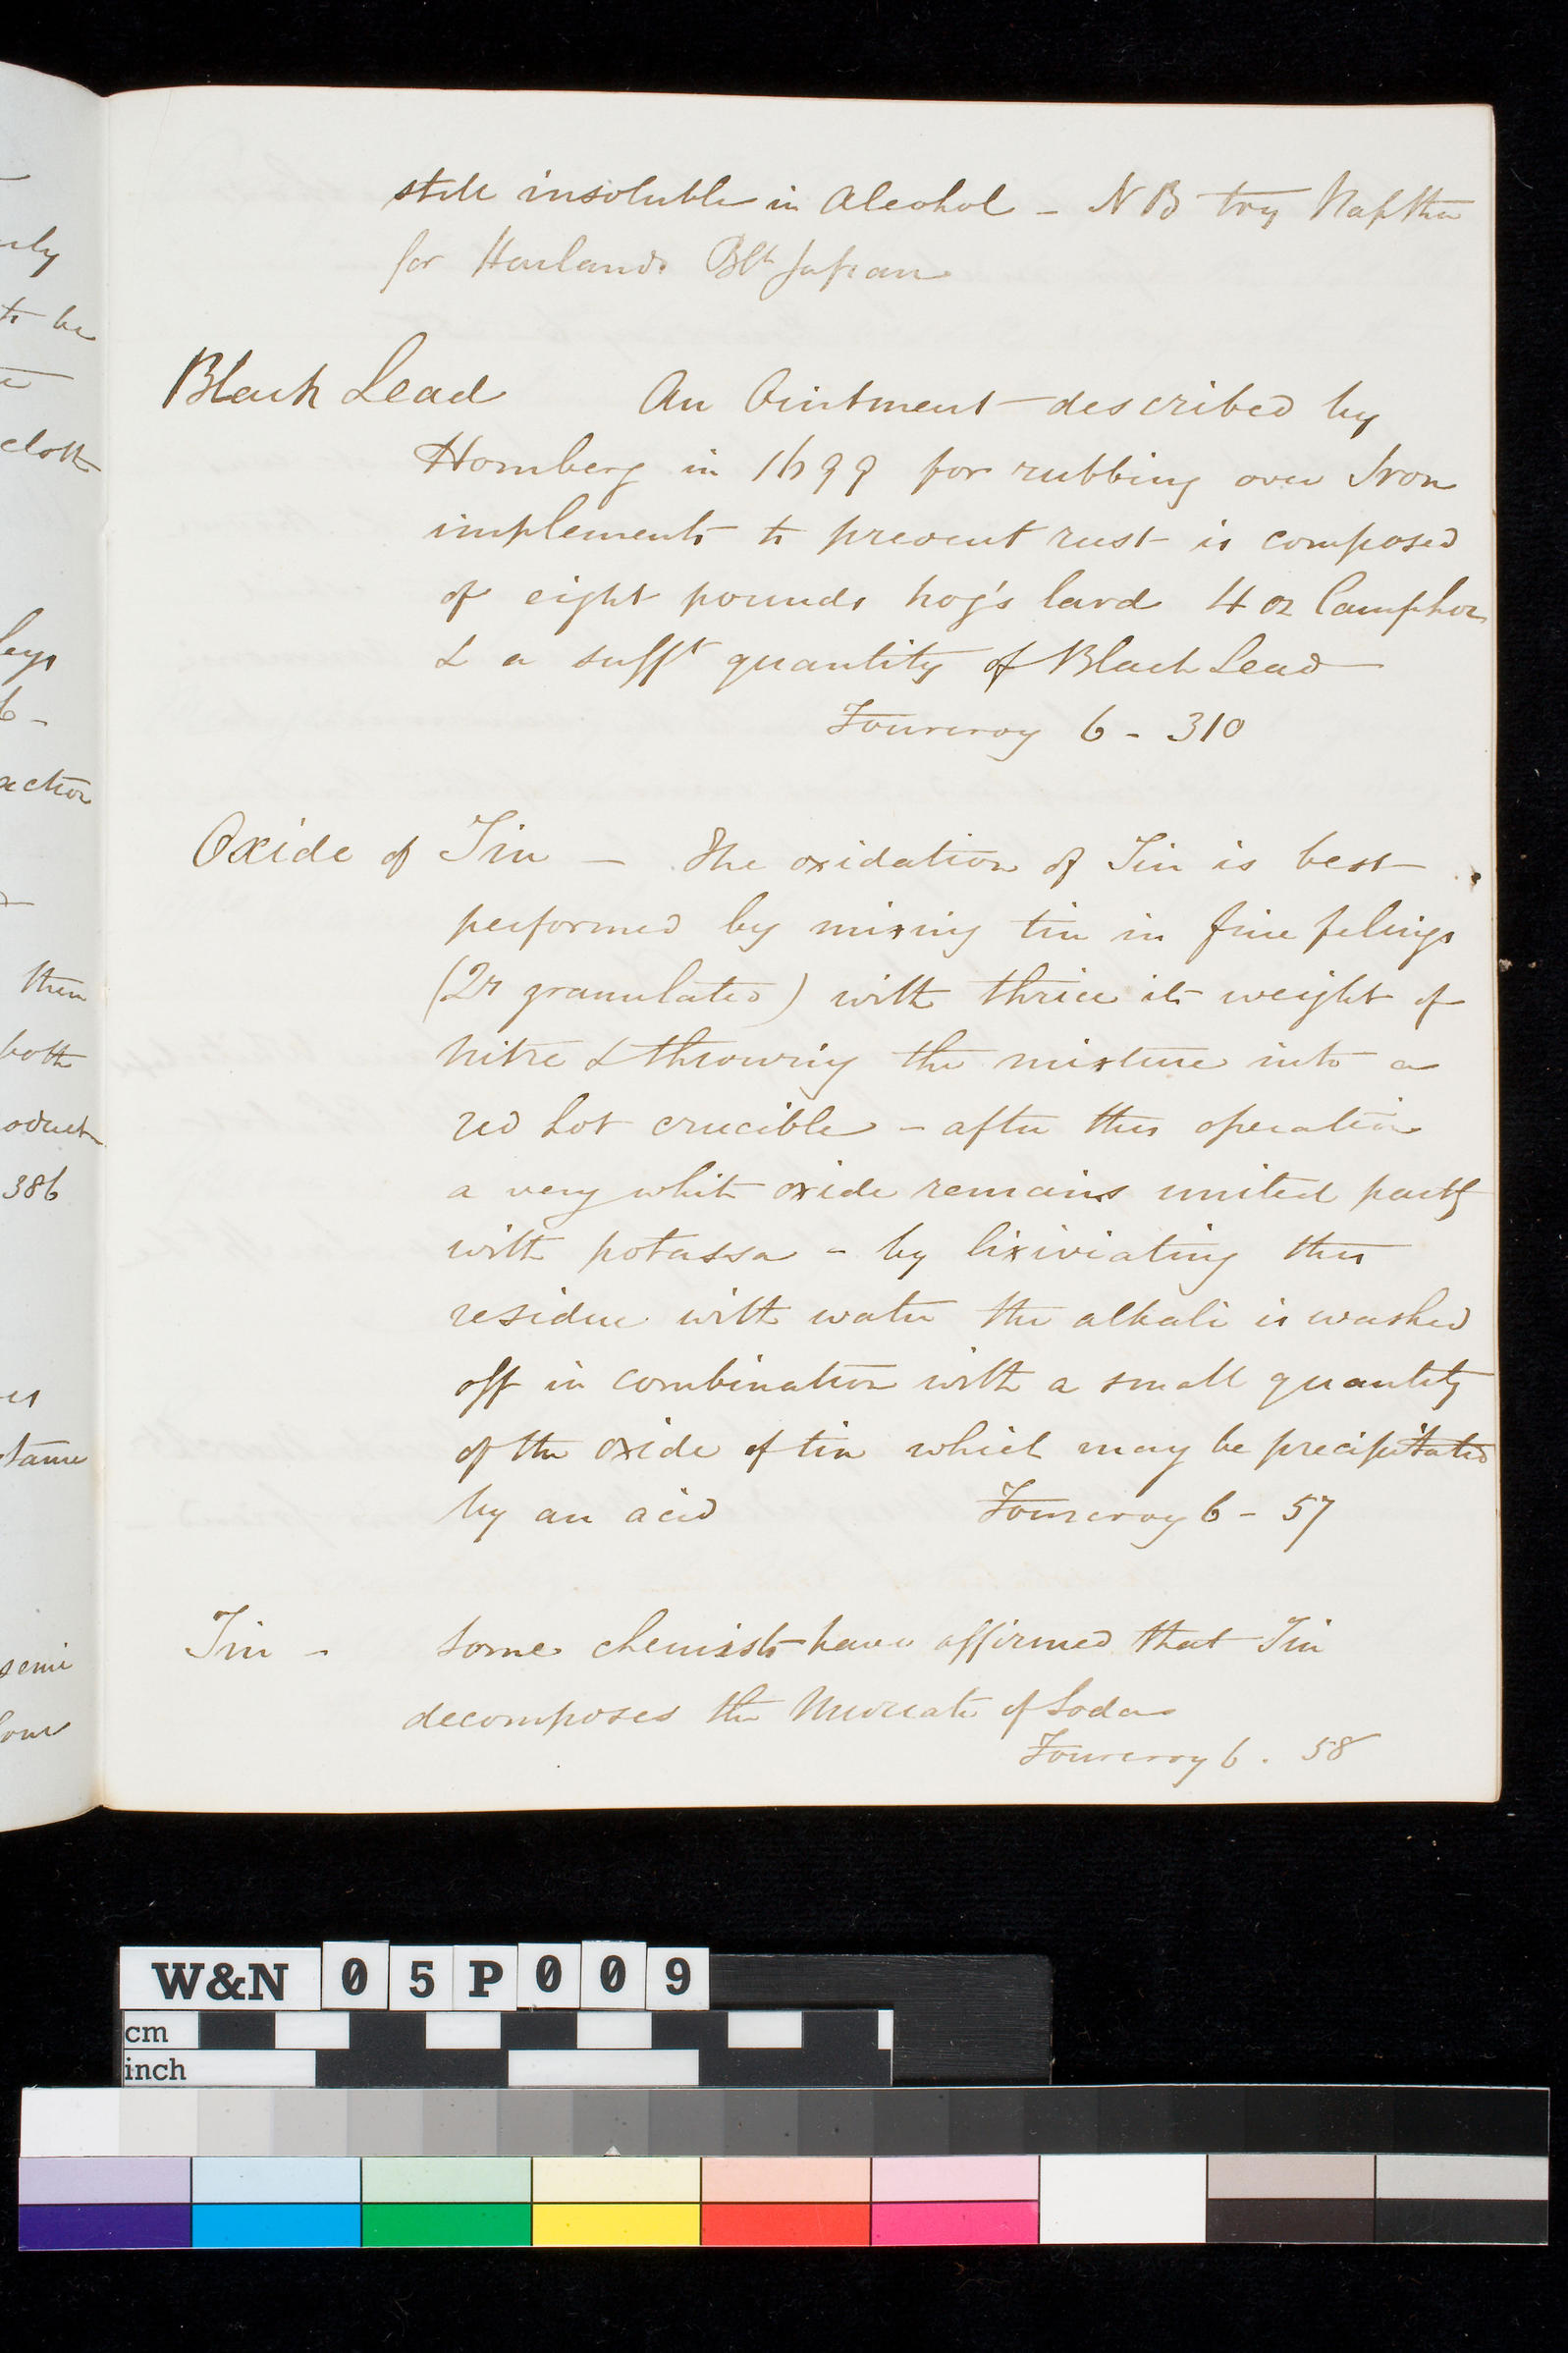 still insoluble in Alcohol - NB try Naptha
for Harlands Blk Japan
Black Lead An Ointment described by
Homberg in 1699 for rubbing over Iron
implements to prevent rust is composed
of eight pounds hog's lard 4 oz Camphor
& a sufft quantity of Black Lead
Fourcroy 6 - 310
Oxide of Tin - The oxidation of Tin is best
performed by mixing tin in fine filings
(Qr granulated) with thrice its weight of
Nitre & throwing the mixture into a
red hot crucible - after this operation
a very white oxide remains united partly
with potassa - by lixiviating this
residue with water the alkali is washed
off in combination with a small quantity
of the oxide of tin which may be precipitated
by an acid Fourcroy 6 - 57
Tin - Some chemists have affirmed that Tin
decomposes the Muriate of Soda
Fourcroy 6 . 58
W&N 05P009
cm
inch